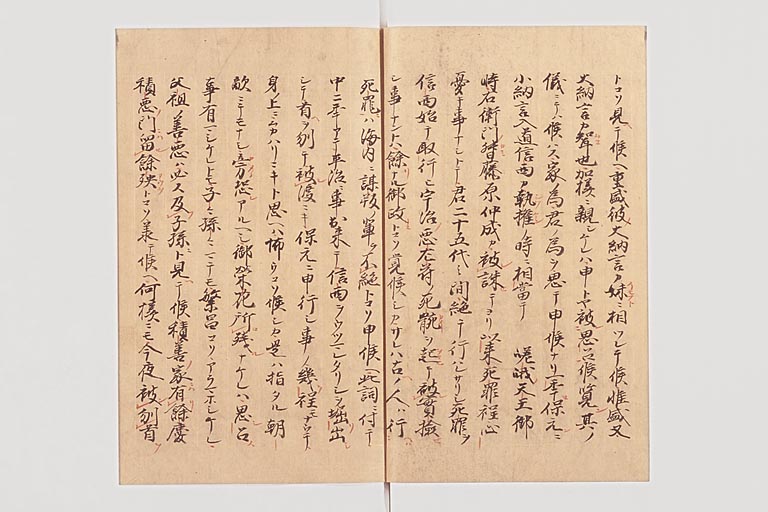 トコソ見テ候ヘ重盛彼大納言ノ妹ニ相ツレテ候惟盛又
大納言カ聟也加様ニ親シケレハ申トヤ被思召候覧其ノ
儀ニテハ候ハス家ノ為君ノ為ヲ思テ申候ナリ一年保元ニ
小納言入道信西カ執権ノ時ニ相當テ 嵯峨天王御
時右衛門督藤原仲成カ被誅テヨリ以来死罪程心
憂キ事ナシトテ君二十五代ノ間絶テ行ハレサリシ死罪ヲ
信西始テ取行ヒ宇治悪左府ノ死骸ヲ起テ被實撿
シ事ナントハ餘ナル御政トコソ覚候シカサレハ古ノ人ハ行
死罪ハ海内ニ謀叛ノ輩不絶トコソ申候ヘ此詞ニ付テ
中二年有テ平治ニ事出来テ信西ヲウツミタリシヲ堀出
シテ首ヲ刎テ被渡ニキ保元ニ申行シ事ノ幾程モナクテ
身ノ上ニムカハリニキト思ヘハ怖クコソ候シカ是ハ指タル朝
敵ニモナシ旁恐アルヘシ御榮花所残ナケレハ思召
事有マシケレトモ子々孫々ニテモ繁昌コソアラマホシケレ
父祖善悪ハ必ス及子孫ト見テ候積善家有餘慶
積悪門留餘殃トコソ承テ候ヘ何様ニモ今夜被刎首